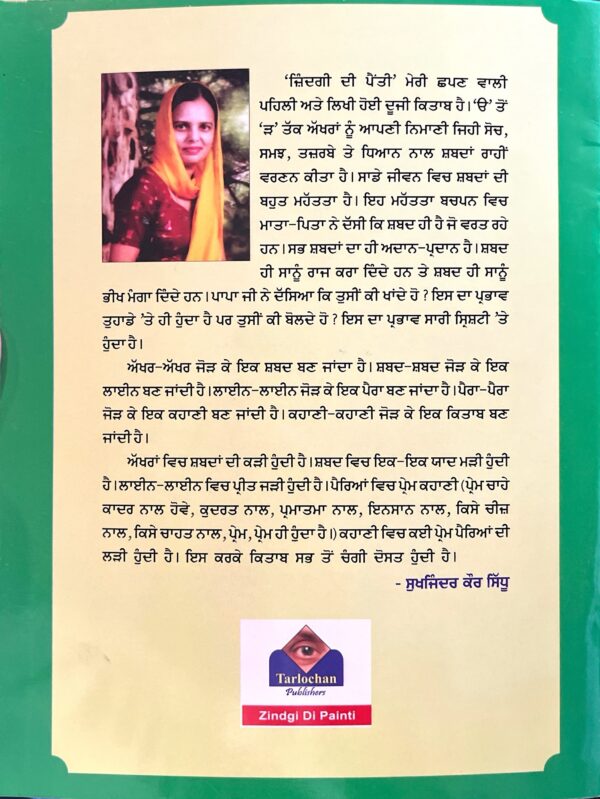 ‘ਜ਼ਿੰਦਗੀ ਦੀ ਪੈਂਤੀ’ ਮੇਰੀ ਛਪਣ ਵਾਲੀ
ਪਹਿਲੀ ਅਤੇ ਲਿਖੀ ਹੋਈ ਦੂਜੀ ਕਿਤਾਬ ਹੈ। ‘ੳ’ ਤੋਂ
‘ੜ’ ਤੱਕ ਅੱਖਰਾਂ ਨੂੰ ਆਪਣੀ ਨਿਮਾਣੀ ਜਿਹੀ ਸੋਚ,
ਸਮਝ, ਤਜ਼ਰਬੇ ਤੇ ਧਿਆਨ ਨਾਲ ਸ਼ਬਦਾਂ ਰਾਹੀਂ
ਵਰਣਨ ਕੀਤਾ ਹੈ। ਸਾਡੇ ਜੀਵਨ ਵਿਚ ਸ਼ਬਦਾਂ ਦੀ
ਬਹੁਤ ਮਹੱਤਤਾ ਹੈ। ਇਹ ਮਹੱਤਤਾ ਬਚਪਨ ਵਿਚ
ਮਾਤਾ-ਪਿਤਾ ਨੇ ਦੱਸੀ ਕਿ ਸ਼ਬਦ ਹੀ ਹੈ ਜੋ ਵਰਤ ਰਹੇ
ਹਨ। ਸਭ ਸ਼ਬਦਾਂ ਦਾ ਹੀ ਅਦਾਨ-ਪ੍ਰਦਾਨ ਹੈ। ਸ਼ਬਦ
ਹੀ ਸਾਨੂੰ ਰਾਜ ਕਰਾ ਦਿੰਦੇ ਹਨ ਤੇ ਸ਼ਬਦ ਹੀ ਸਾਨੂੰ
ਭੀਖ ਮੰਗਾ ਦਿੰਦੇ ਹਨ। ਪਾਪਾ ਜੀ ਨੇ ਦੱਸਿਆ ਕਿ ਤੁਸੀਂ ਕੀ ਖਾਂਦੇ ਹੋ ? ਇਸ ਦਾ ਪ੍ਰਭਾਵ
ਤੁਹਾਡੇ ’ਤੇ ਹੀ ਹੁੰਦਾ ਹੈ ਪਰ ਤੁਸੀਂ ਕੀ ਬੋਲਦੇ ਹੋ ? ਇਸ ਦਾ ਪ੍ਰਭਾਵ ਸਾਰੀ ਸ੍ਰਿਸ਼ਟੀ ’ਤੇ
ਹੁੰਦਾ ਹੈ।
ਅੱਖਰ-ਅੱਖਰ ਜੋੜ ਕੇ ਇਕ ਸ਼ਬਦ ਬਣ ਜਾਂਦਾ ਹੈ। ਸ਼ਬਦ-ਸ਼ਬਦ ਜੋੜ ਕੇ ਇਕ
ਲਾਈਨ ਬਣ ਜਾਂਦੀ ਹੈ। ਲਾਈਨ-ਲਾਈਨ ਜੋੜ ਕੇ ਇਕ ਪੈਰਾ ਬਣ ਜਾਂਦਾ ਹੈ। ਪੈਰਾ-ਪੈਰਾ
ਜੋੜ ਕੇ ਇਕ ਕਹਾਣੀ ਬਣ ਜਾਂਦੀ ਹੈ। ਕਹਾਣੀ-ਕਹਾਣੀ ਜੋੜ ਕੇ ਇਕ ਕਿਤਾਬ ਬਣ
ਜਾਂਦੀ ਹੈ।
ਅੱਖਰਾਂ ਵਿਚ ਸ਼ਬਦਾਂ ਦੀ ਕੜੀ ਹੁੰਦੀ ਹੈ। ਸ਼ਬਦ ਵਿਚ ਇਕ-ਇਕ ਯਾਦ ਮੜੀ ਹੁੰਦੀ
ਹੈ। ਲਾਈਨ-ਲਾਈਨ ਵਿਚ ਪ੍ਰੀਤ ਜੜੀ ਹੁੰਦੀ ਹੈ। ਪੈਰਿਆਂ ਵਿਚ ਪ੍ਰੇਮ ਕਹਾਣੀ (ਪ੍ਰੇਮ ਚਾਹੇ
ਕਾਦਰ ਨਾਲ ਹੋਵੇ, ਕੁਦਰਤ ਨਾਲ, ਪ੍ਰਮਾਤਮਾ ਨਾਲ, ਇਨਸਾਨ ਨਾਲ, ਕਿਸੇ ਚੀਜ਼
ਨਾਲ, ਕਿਸੇ ਚਾਹਤ ਨਾਲ, ਪ੍ਰੇਮ, ਪ੍ਰੇਮ ਹੀ ਹੁੰਦਾ ਹੈ।) ਕਹਾਣੀ ਵਿਚ ਕਈ ਪ੍ਰੇਮ ਪੈਰਿਆਂ ਦੀ
ਲੜੀ ਹੁੰਦੀ ਹੈ। ਇਸ ਕਰਕੇ ਕਿਤਾਬ ਸਭ ਤੋਂ ਚੰਗੀ ਦੋਸਤ ਹੁੰਦੀ ਹੈ।
- ਸੁਖਜਿੰਦਰ ਕੌਰ ਸਿੱਧੂ
Tarlochan
Publishers
Zindgi Di Painti